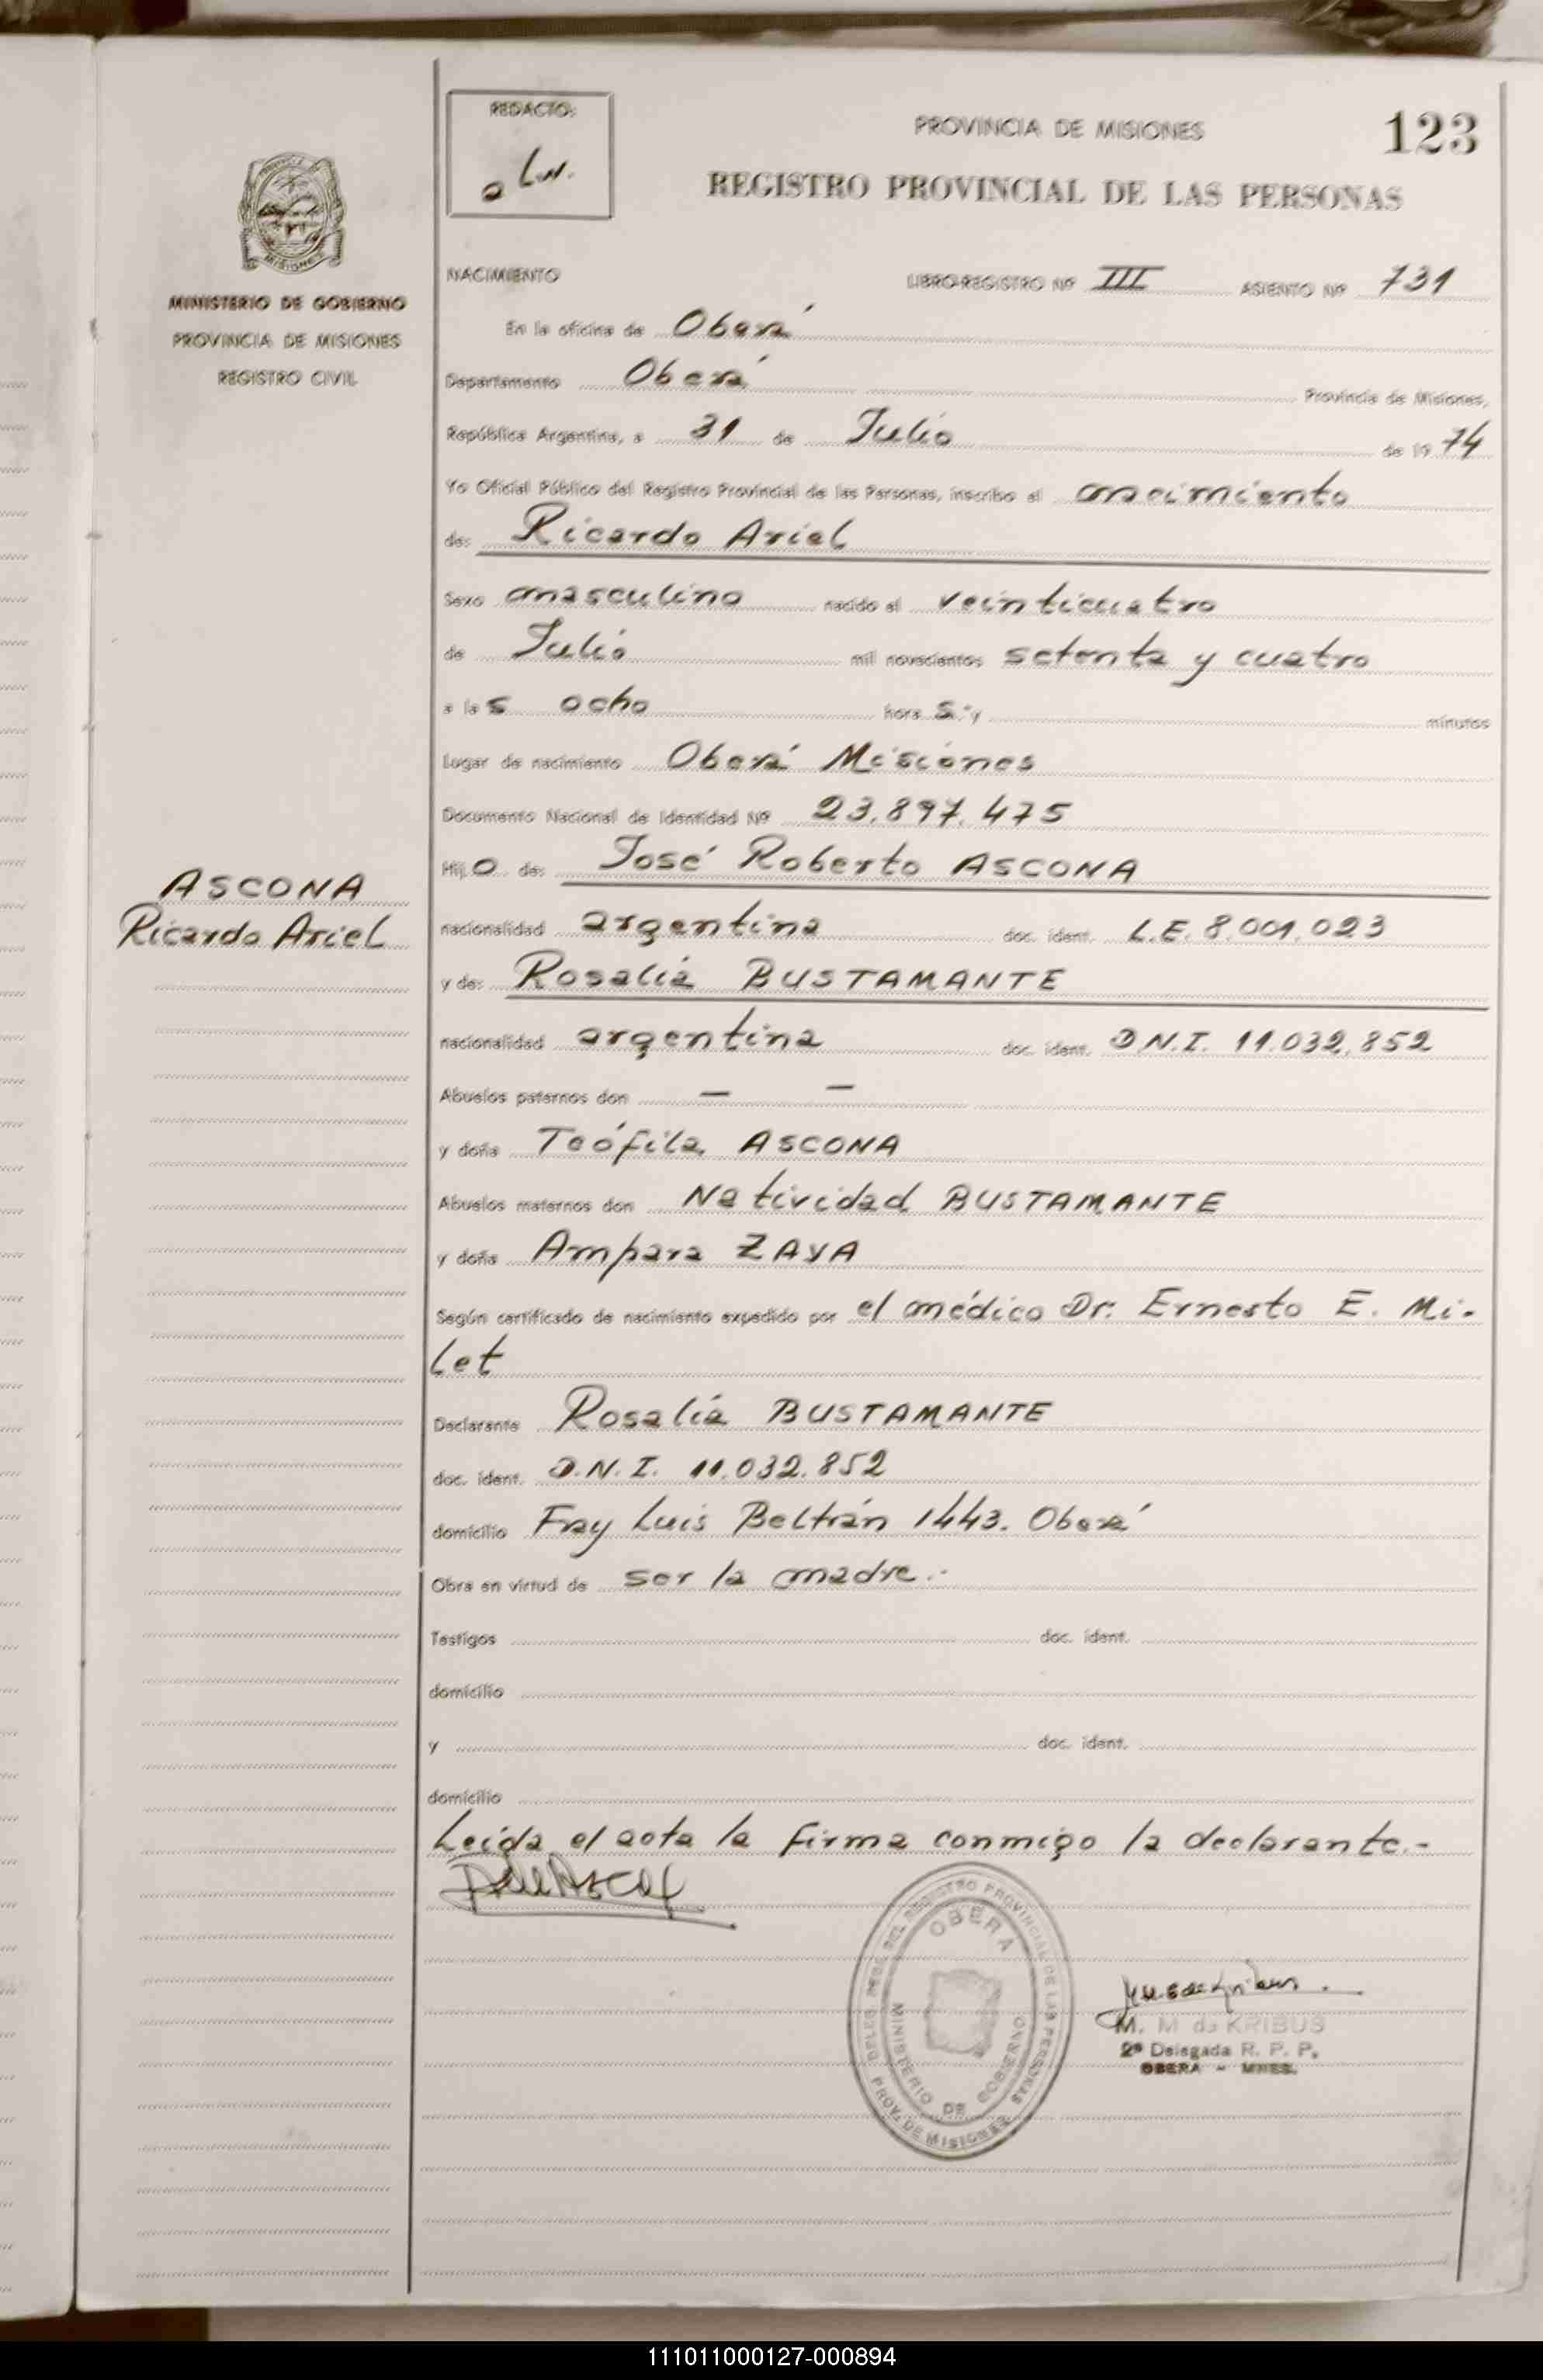 REDACTO:
PROVINCIA DE MISIONES
123
REGISTRO PROVINCIAL DE LAS PERSONAS
MISIONES
MINISTERIO DE GOBIERNO
PROVINCIA DE MISIONES
REGISTRO CIVIL
NACIMIENTO LIBRO-REGISTRO Nº III ASIENTO Nº 731
En la oficina de Oberá
Departamento Oberá Provincia de Misiones,
República Argentina, a 31 de Julio de 1974
Yo Oficial Público del Registro Provincial de las Personas, inscribo el nacimiento
de: Ricardo Ariel
Sexo masculino nacido el veinticuatro
de Julio mil novecientos setenta y cuatro
a las ocho horas.- y minutos
Lugar de nacimiento Oberá Misiones
Documento Nacional de Identidad Nº 23.897.475
Hijo de: José Roberto ASCONA
ASCONA
Ricardo Ariel
nacionalidad argentina doc. ident. L.E. 8.001.023
y de: Rosalia BUSTAMANTE
nacionalidad argentina doc. ident. D.N.I. 11.032.852
Abuelos paternos don — —
y doña Teófila ASCONA
Abuelos maternos don Natividad BUSTAMANTE
y doña Ampara ZAYA
Según certificado de nacimiento expedido por el médico Dr. Ernesto E. Mi-
let
Declarante Rosalia BUSTAMANTE
doc. ident. D.N.I. 11.032.852
domicilio Fray Luis Beltrán 1443. Oberá
Obra en virtud de ser la madre.-
Testigos doc. ident.
domicilio
y doc. ident.
domicilio
Leida el acta la firma conmigo la declarante.-
DELEG. DEL REGISTRO PROVINCIAL DE LAS PERSONAS
OBERA
MINISTERIO DE GOBIERNO
PROV. DE MISIONES
M. M de KRIBUS
2ª Delegada R. P. P.
OBERA - MNES.
111011000127-000894